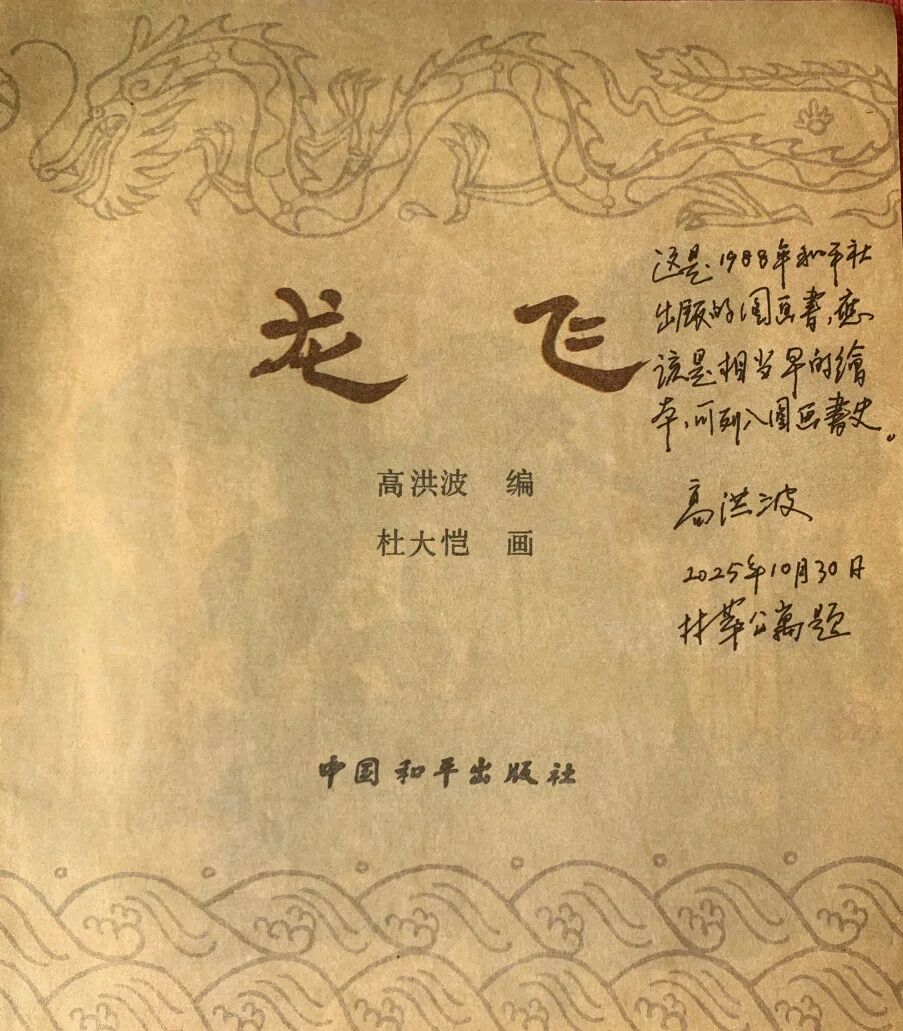 龙 飞
高洪波 编
杜大恺 画
中国和平出版社
这是1988年和平社
出版的图画書,应
该是相当早的繪
本,可列入图画書史。
高洪波
2025年10月30日
林萃公寓题